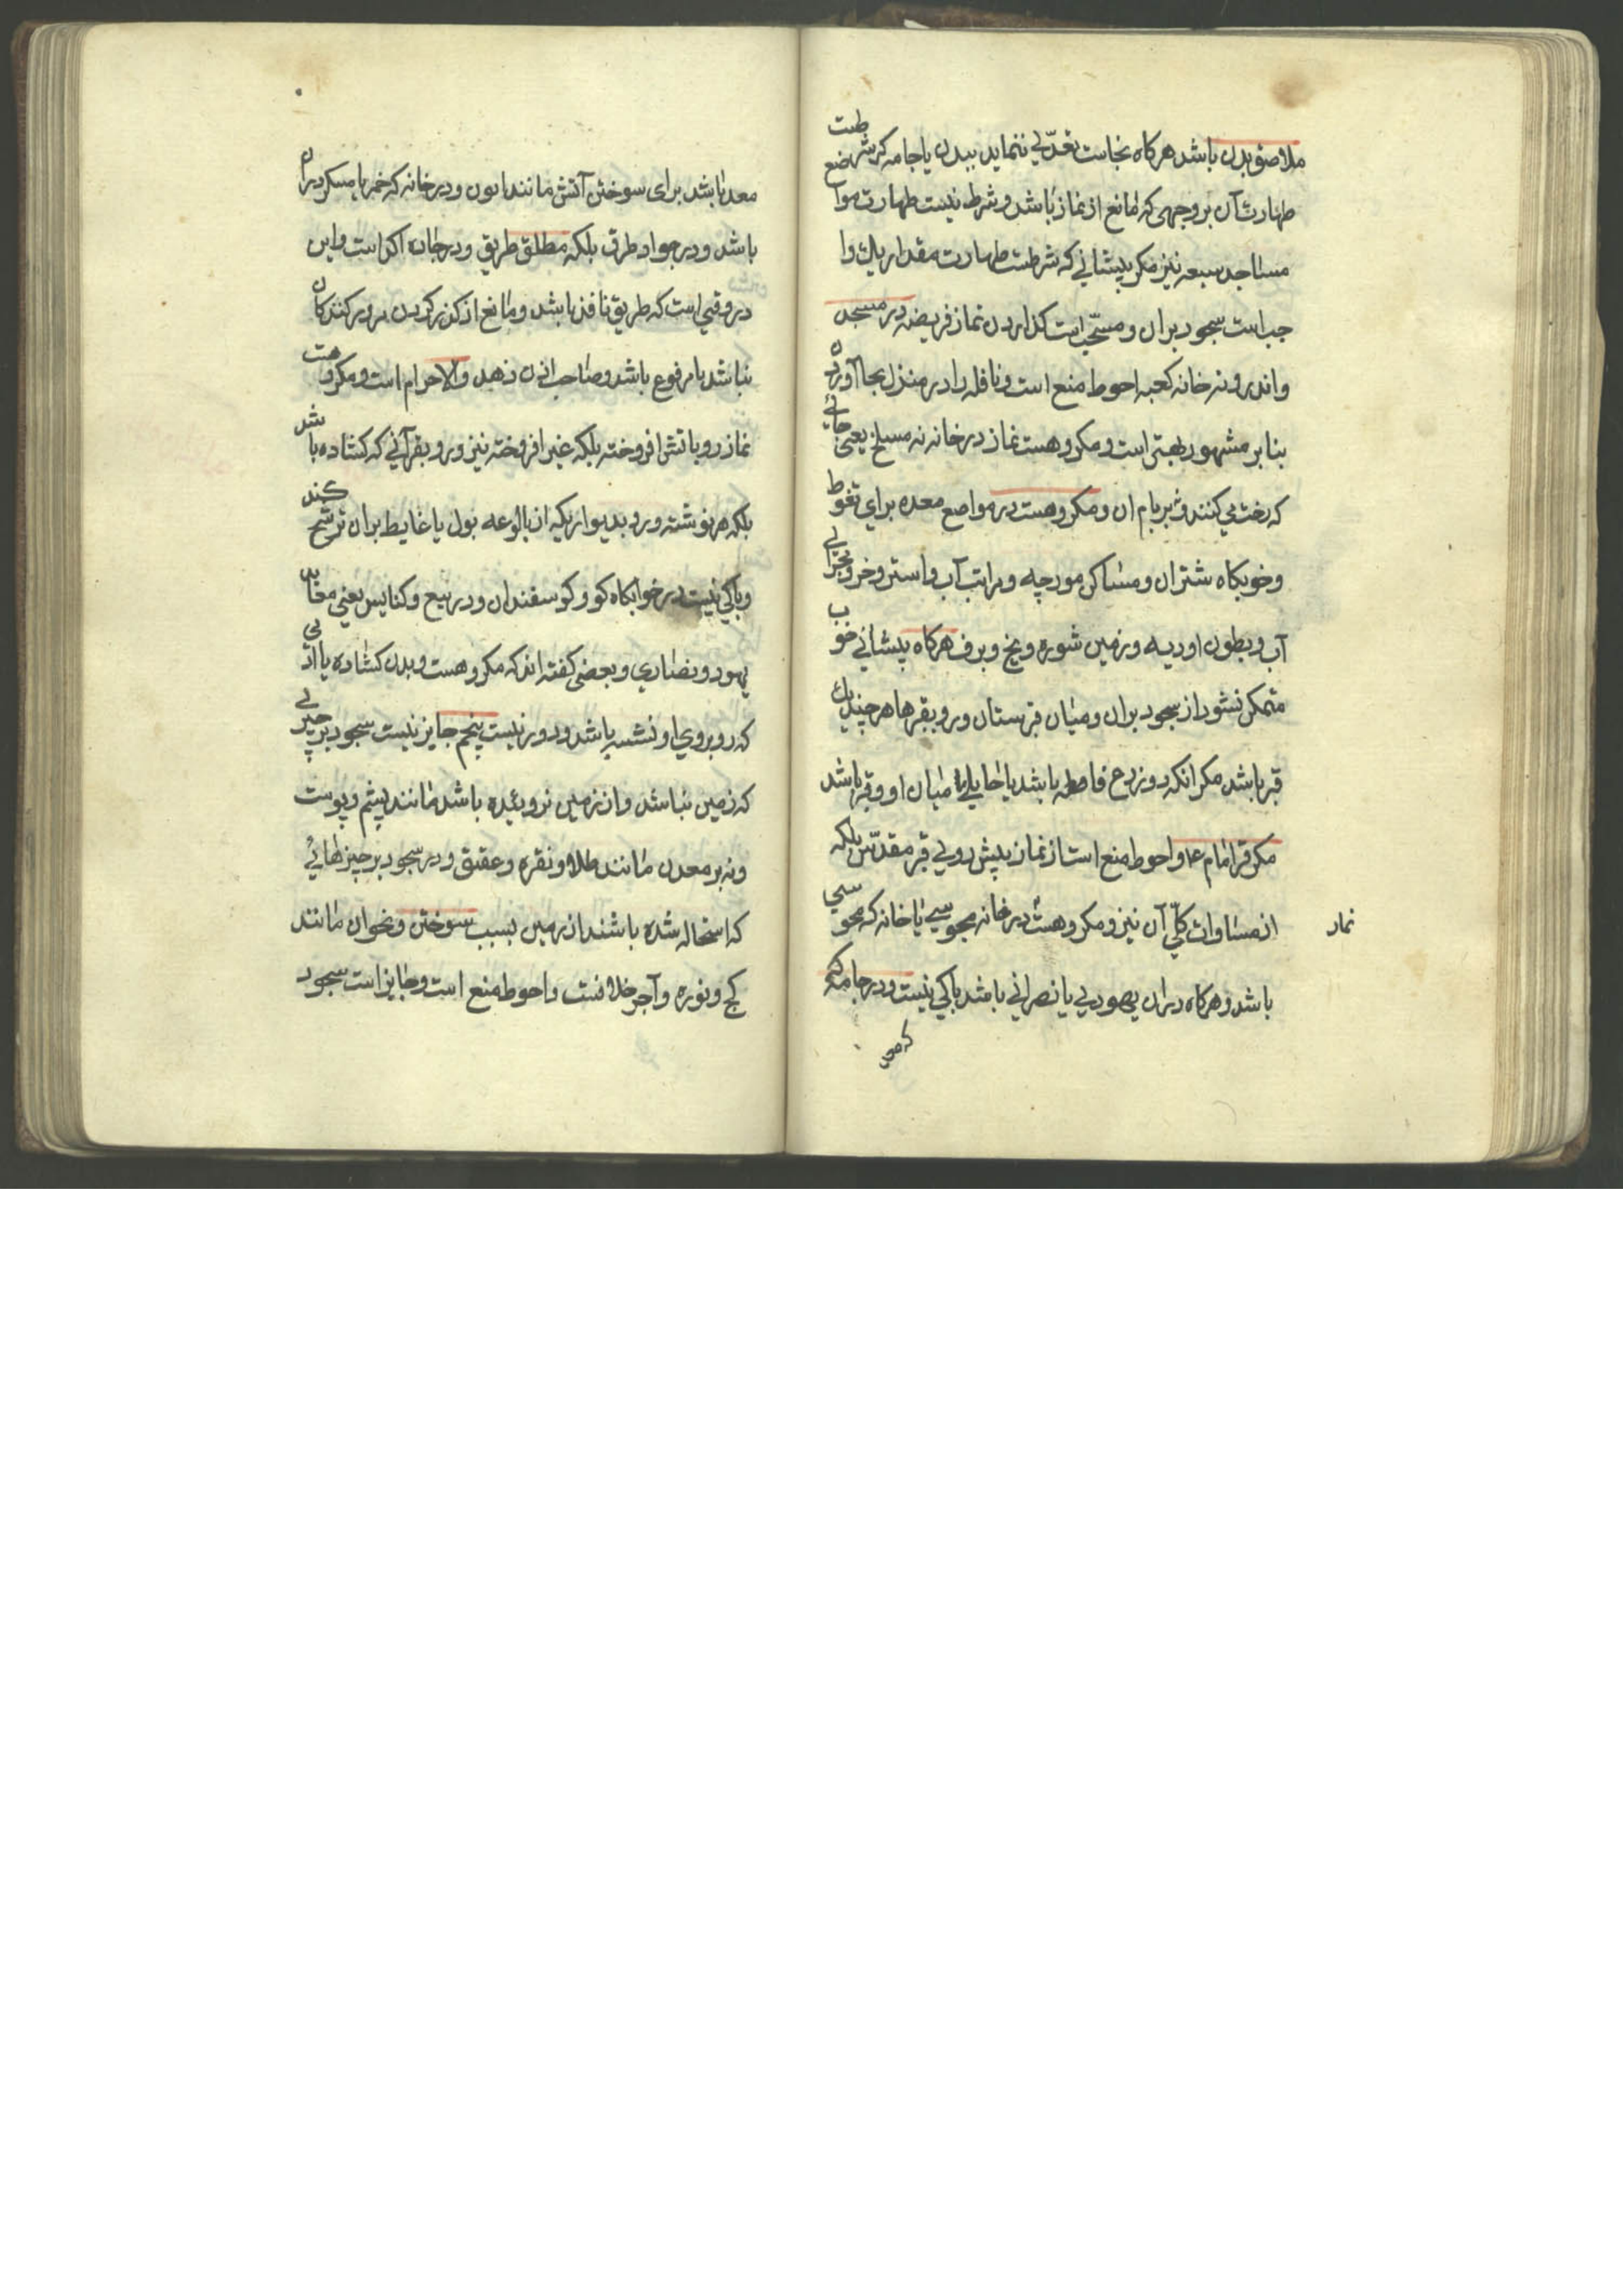 ملاصق بدن باشد هرکاه نجاست تعدّی ننماید ببدن یا جامه که شرطست
طهارت آن بر وجهی که مانع از نماز باشد و شرط نیست طهارت مواضع
مساجد سبعه نیز مکر پیشانی که شرطست طهارت مقدار یک وا
جب است سجود بران و مستحب است کذاردن نماز فریضه در مسجد
واندرونه خانه کعبه احوط منع است و نافله را در منزل بجا آوردن
بنابر مشهور بهتر است و مکروهست نماز در خانه نه مسلخ یعنی جائی
که رخت می کنند و بربام ان و مکروهست در مواضع معده برای تغوط
وخوبکاه شتران و مساکن مورچه و مرابت آب و استر وخر و مجرای
آب و بطون اودیه وزمین شوره ویخ وبرف هرکاه پیشانی خوب
متمکن نشود از سجود بران ومیان قبرستان ورو بقبرها هرچند یک
قبر باشد مکر انکه دوزرع فاصله باشد یا حایلی میان او وقبر باشد
مکر قبر امام ۴ واحوط منع است از نماز پیش روی قبر مقدّس بلکه
از مساوات کلّی آن نیز و مکروهست در خانه مجوسی یا خانه که مجوسی
نماز
باشد وهرکاه دران یهودی یا نصرانی باشد باکی نیست ودرجا
معد باشد برای سوختن آتش مانند اتون ودرخانه که خمر یا مسکر دران
باشد ودر جواد طرق بلکه مطلق طریق ودرجاده اکد است واین
در وقتی است که طریق نافذ باشد ومانع از کذر کردن مرور کنندکان
نباشد یا مرفوع باشد وصاحب اذن ندهد والا حرام است ومکروهست
نماز رو باتش افروخته بلکه غیر افروخته نیز ورو بقرآنی که کشاده باشد
بلکه هر نوشته ورو بدیواریکه از بالوعه بول یا غایط بران ترشح کند
وباکی نیست در خوابکاه کو وکوسفندان ودر بیع وکنایس یعنی معابد
یهود ونصاری وبعضی کفته اند که مکروهست وبدن کشاده یا ادمی
که روبروی او نشسه باشد ودور نیست پنجم جایز نیست سجود بر چیزی
که زمین نباشد واز زمین نروئیده باشد مانند پشم وپوست
ونه بر معدن مانند طلا ونقره وعقیق ودر سجود بر چیزهائی
که استحاله شده باشند از زمین بسبب سوختن ونحو ان مانند
کچ ونوره وآجر خلافست واحوط منع است وجایز است سجود